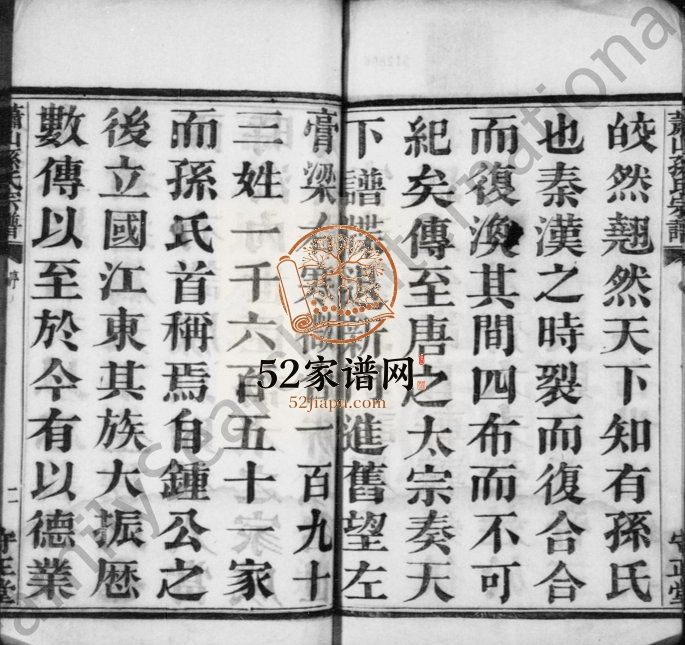 蕭山孫氏宗譜
守正堂
皎然翹然天下知有孫氏
也秦漢之時裂而復合合
而復渙其間四布而不可
紀矣傳至唐之太宗奏天
下譜退新進舊望左
膏梁右寒一百九十
三姓一千六百五十一家
而孫氏首稱焉自鍾公之
後立國江東其族大振歷
數傳以至於今有以德業
蕭山孫氏宗譜
二
守正堂
52家谱网
52jiapu.com